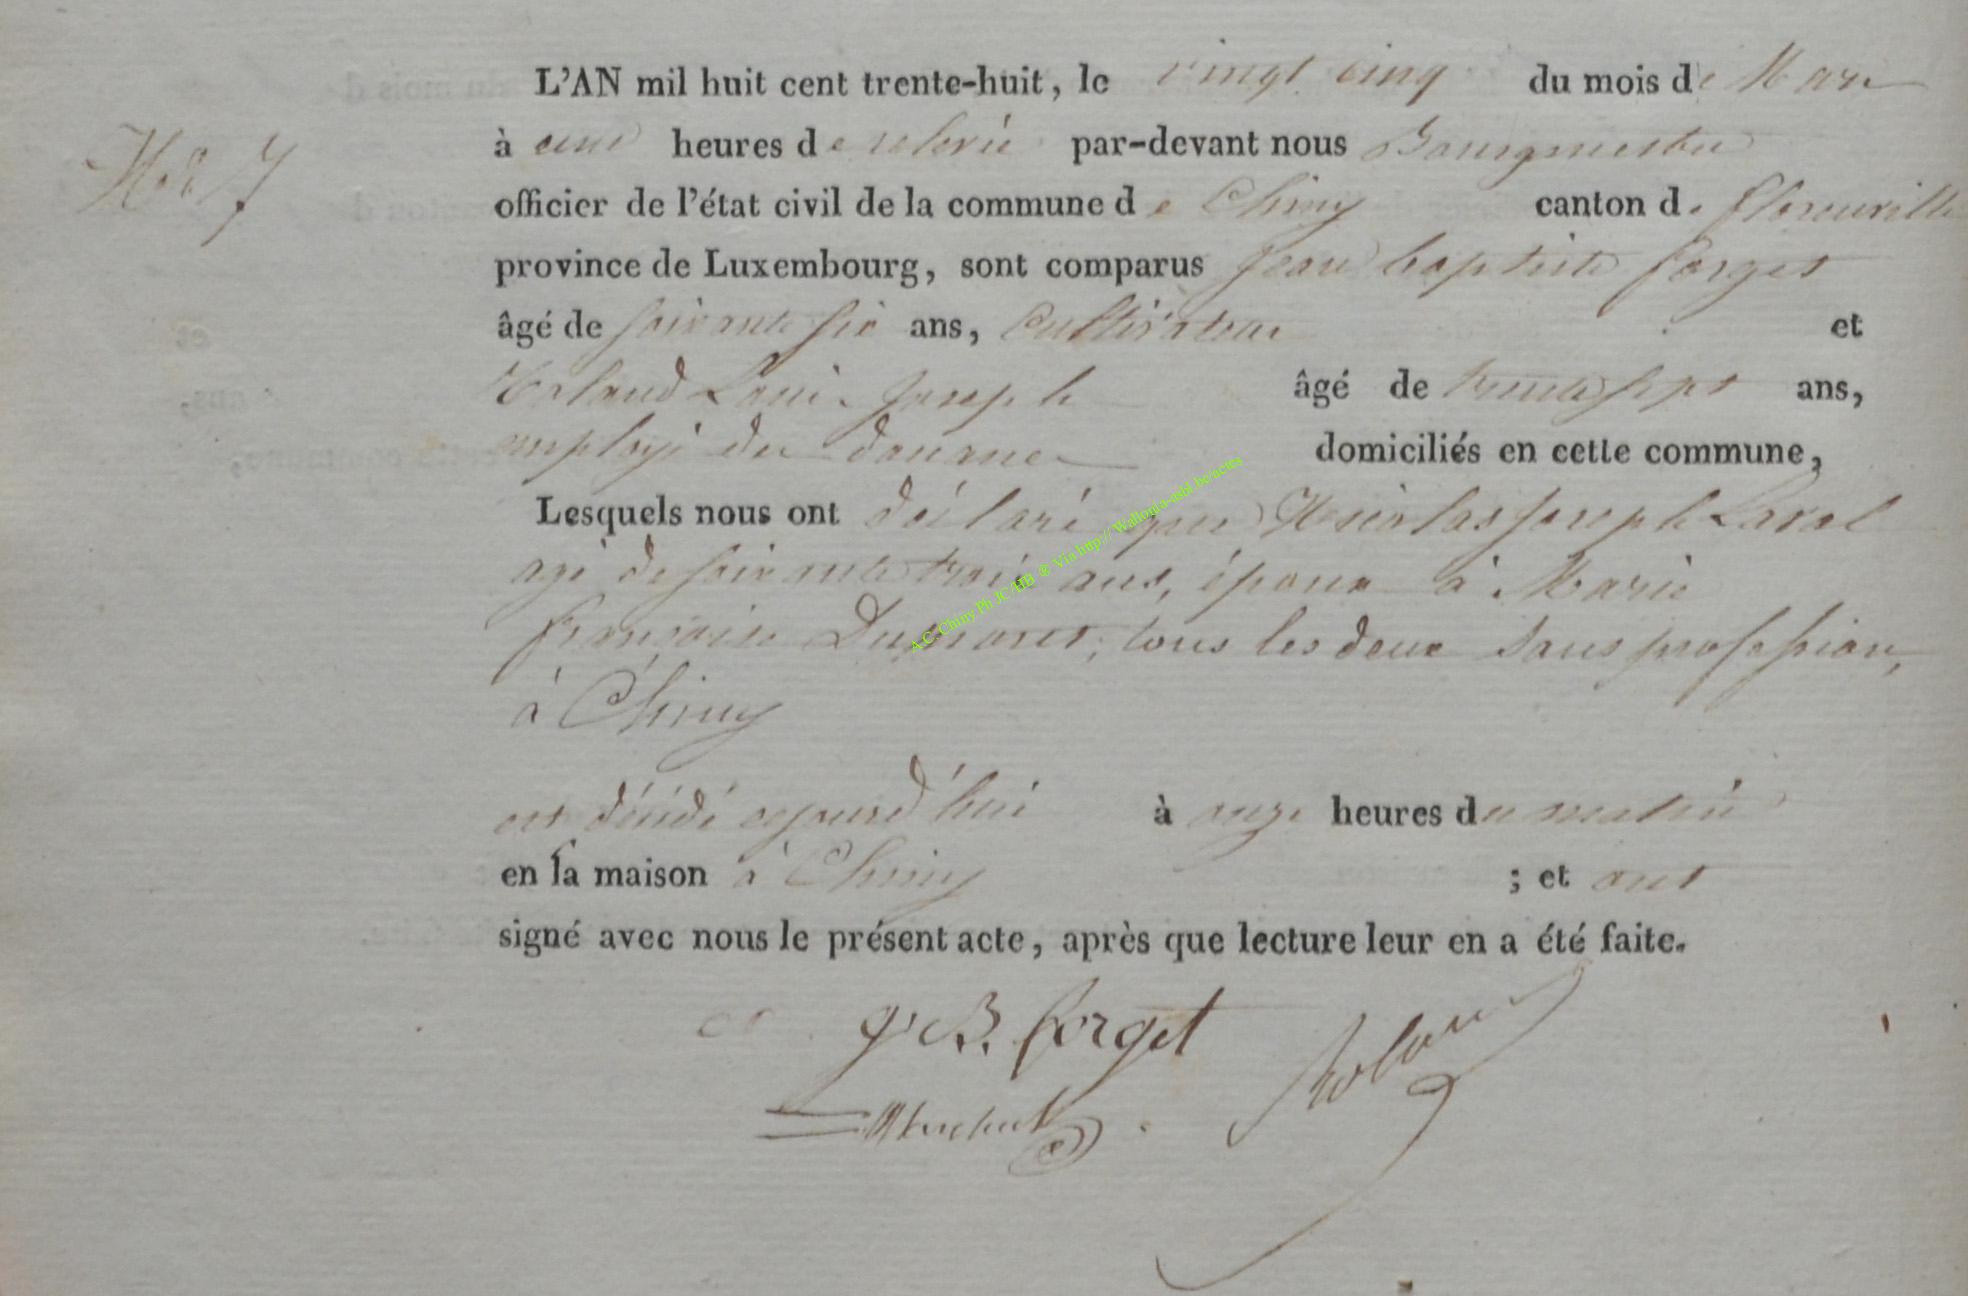 L'AN mil huit cent trente-huit, le vingt cinq du mois de Mars
N.° 7
à une heures de relevée par-devant nous Bourgmestre
officier de l'état civil de la commune de Chiny canton de florenville
province de Luxembourg, sont comparus Jean baptiste forget
âgé de soixante six ans, Cultivateur et
Roland Louis Joseph âgé de trente sept ans,
employé des douanes domiciliés en cette commune,
Lesquels nous ont déclaré que Nicolas Joseph Laval
agé de soixante trois ans, époux à Marie
françoise Dumont, tous les deux sans profession,
à Chiny
est décédé cejourd'hui à onze heures du matin
en la maison à Chiny ; et ont
signé avec nous le présent acte, après que lecture leur en a été faite.
J. B. forget
A.C. Chiny Ph JCAHB ® Via http:// Wallonia-asbl.be/actes